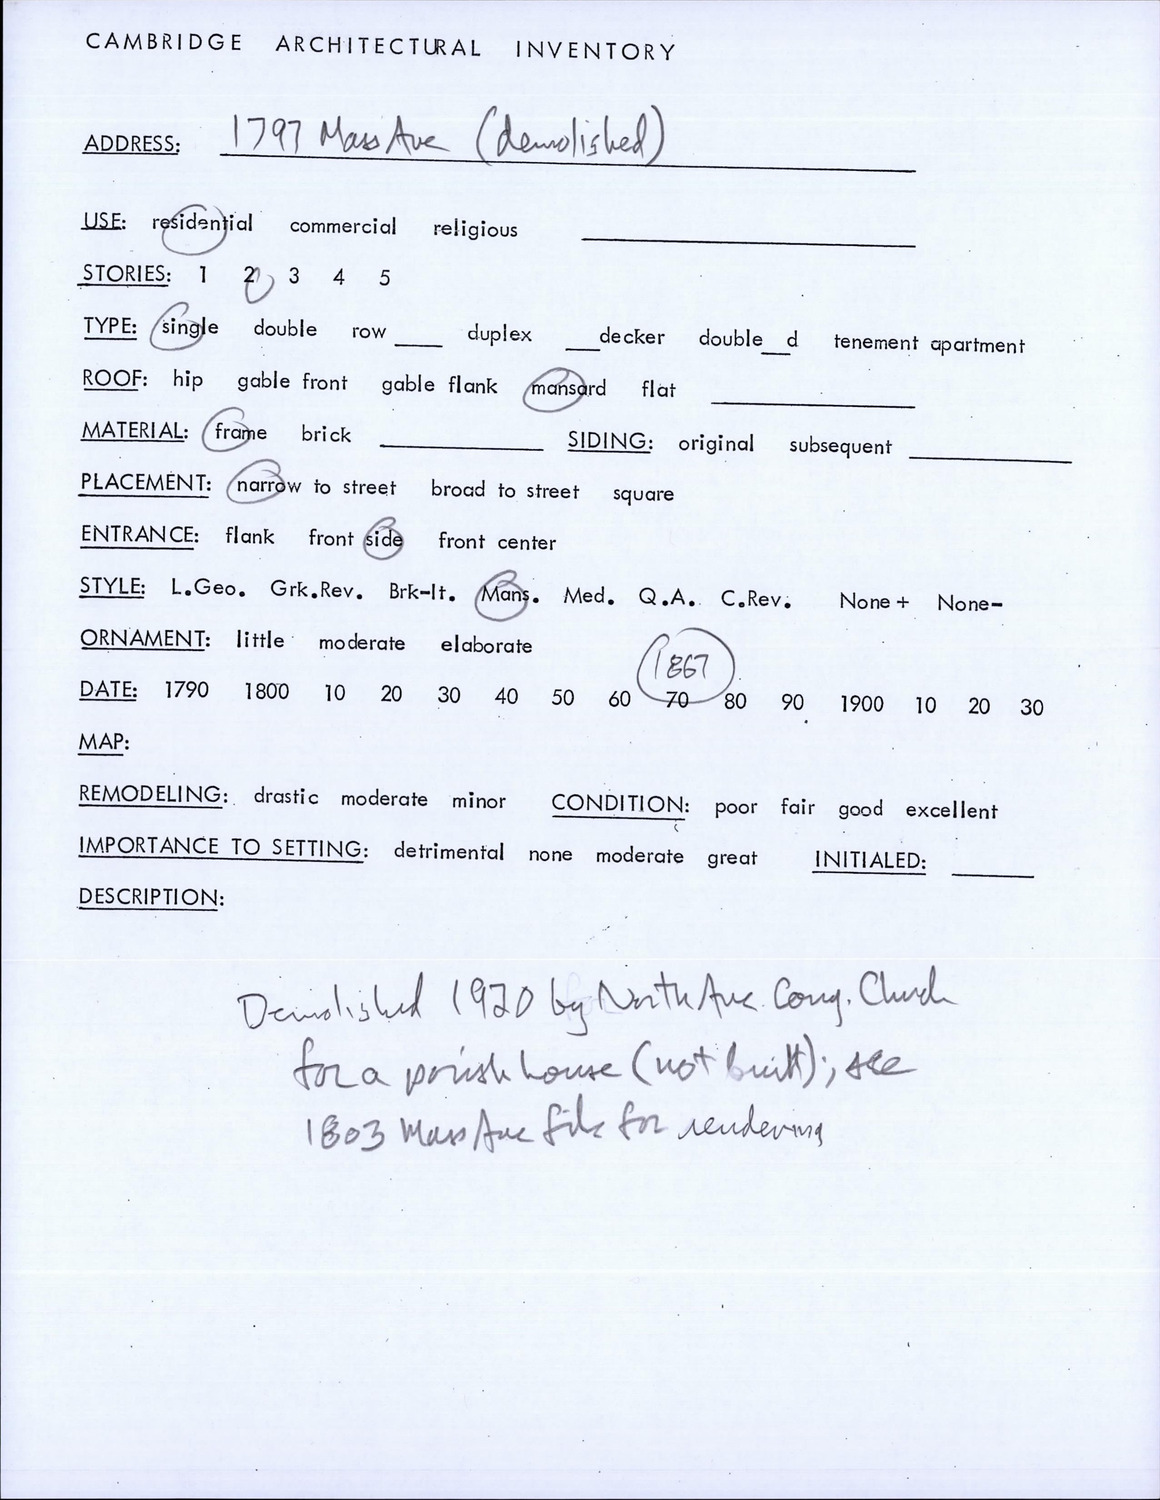 CAMBRIDGE ARCHITECTURAL INVENTORY
ADDRESS: 1797 Mass Ave (demolished)
USE: residential commercial religious
STORIES: 1 2 3 4 5
TYPE: single double row ____ duplex ___decker double__d tenement apartment
ROOF: hip gable front gable flank mansard flat
MATERIAL: frame brick ____ SIDING: original subsequent ____
PLACEMENT: narrow to street broad to street square
ENTRANCE: flank front side front center
STYLE: L.Geo. Grk.Rev. Brk-It. Mans. Med. Q.A. C.Rev. None+ None-
ORNAMENT: little moderate elaborate
1867
DATE: 1790 1800 10 20 30 40 50 60 70 80 90 1900 10 20 30
MAP:
REMODELING: drastic moderate minor CONDITION: poor fair good excellent
IMPORTANCE TO SETTING: detrimental none moderate great INITIALED: ____
DESCRIPTION:
Demolished 1920 by North Ave Cong. Church
for a parish house (not built); see
1803 Mass Ave file for rendering